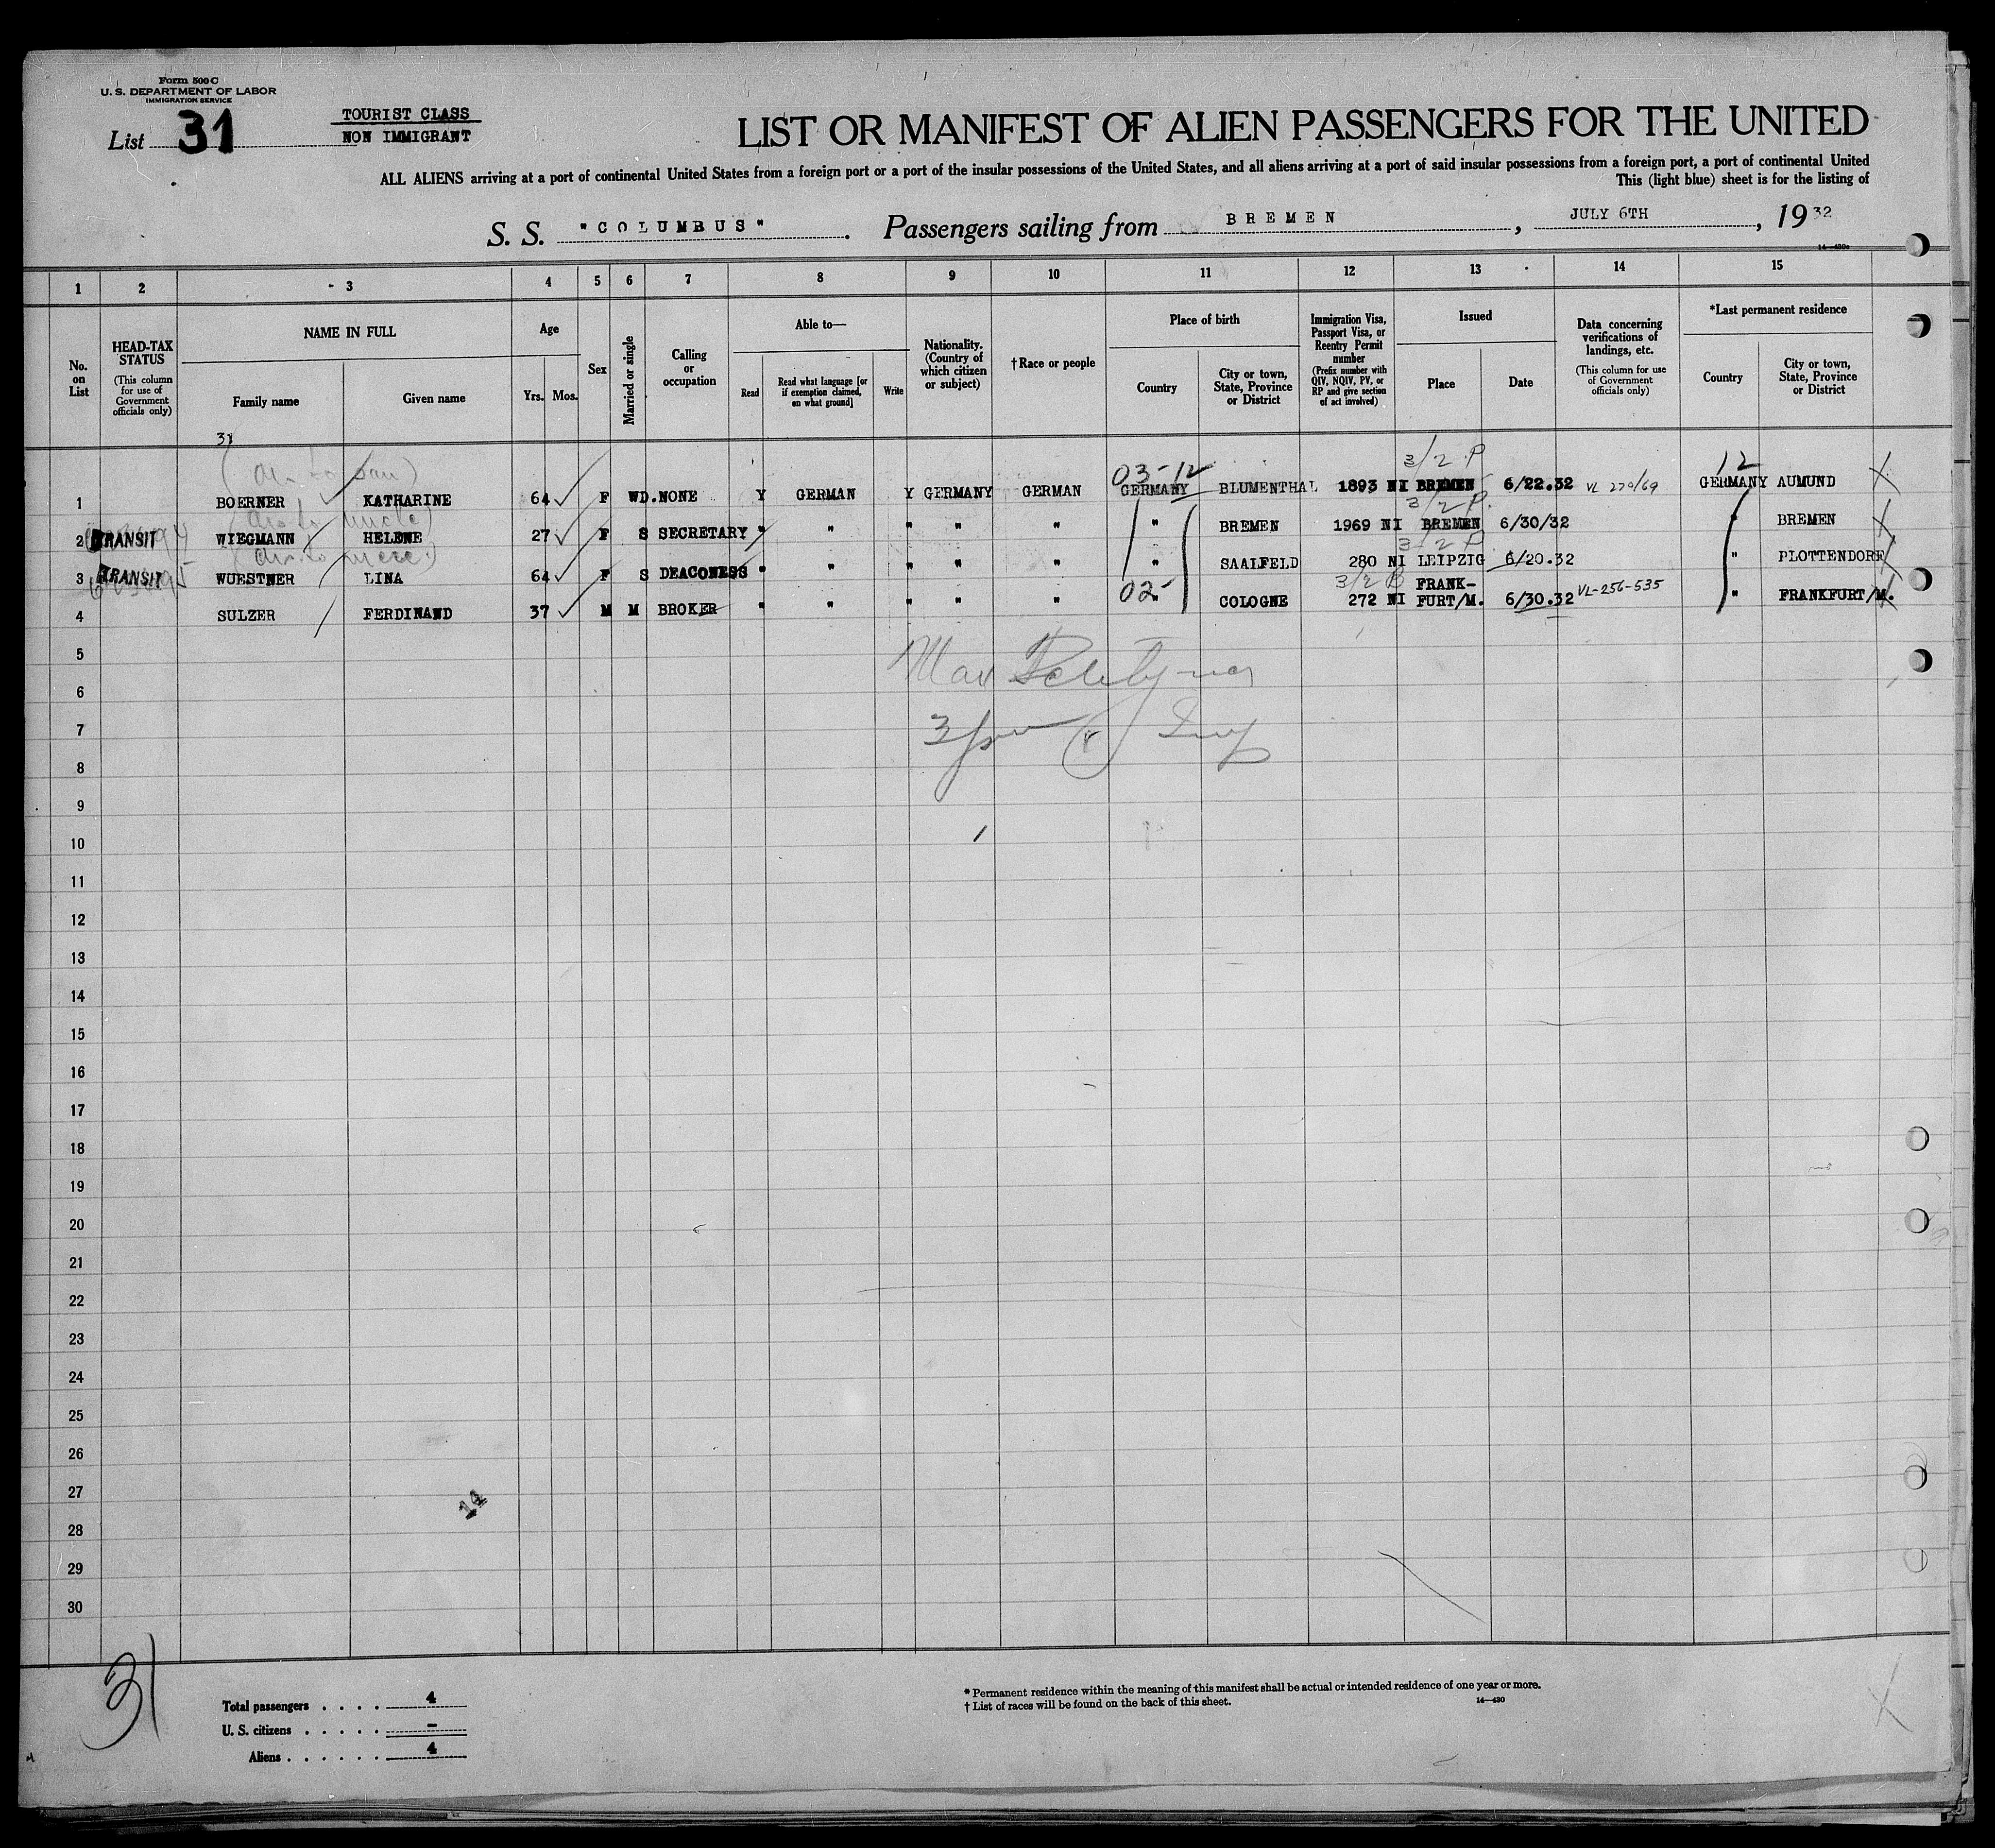 Form 500 C
U. S. DEPARTMENT OF LABOR
IMMIGRATION SERVICE
List 31
TOURIST CLASS
NON IMMIGRANT
LIST OR MANIFEST OF ALIEN PASSENGERS FOR THE UNITED
ALL ALIENS arriving at a port of continental United States from a foreign port or a port of the insular possessions of the United States, and all aliens arriving at a port of said insular possessions from a foreign port, a port of continental United
This (light blue) sheet is for the listing of
S. S. "COLUMBUS" . Passengers sailing from BREMEN , JULY 6TH , 19 32
14—430c
1 2 3 4 5 6 7 8 9 10 11 12 13 14 15
No. on List
HEAD-TAX STATUS
(This column for use of Government officials only)
NAME IN FULL
Family name
Given name
Age
Yrs. Mos.
Sex
Married or single
Calling or occupation
Able to—
Read
Read what language [or if exemption claimed, on what ground]
Write
Nationality. (Country of which citizen or subject)
†Race or people
Place of birth
Country
City or town, State, Province or District
Immigration Visa, Passport Visa, or Reentry Permit number
(Prefix number with QIV, NQIV, PV, or RP and give section of act involved)
Issued
Place
Date
Data concerning verifications of landings, etc.
(This column for use of Government officials only)
*Last permanent residence
Country
City or town, State, Province or District
31
03-12 3/2 P 12
1 BOERNER KATHARINE 64 F WD. NONE Y GERMAN Y GERMANY GERMAN GERMANY BLUMENTHAL 1893 NI BREMEN 6/22.32 VL 270/69 GERMANY AUMUND
3/2 P.
2 TRANSIT WIEGMANN HELENE 27 F S SECRETARY " " " " " " BREMEN 1969 NI BREMEN 6/30/32 " BREMEN
3/2 P
3 TRANSIT WUESTNER LINA 64 F S DEACONESS " " " " " " SAALFELD 280 NI LEIPZIG 6/20.32 " PLOTTENDORF
02- 3/2 P
4 SULZER FERDINAND 37 M M BROKER " " " " " " COLOGNE 272 NI FRANK-FURT/M. 6/30.32 VL-256-535 " FRANKFURT/M.
5
6
7
8
9
10
11
12
13
14
15
16
17
18
19
20
21
22
23
24
25
26
27
28
29
30
14
31
Total passengers . . . . 4
U. S. citizens . . . . . –
Aliens . . . . . . 4
* Permanent residence within the meaning of this manifest shall be actual or intended residence of one year or more.
† List of races will be found on the back of this sheet.
14—430